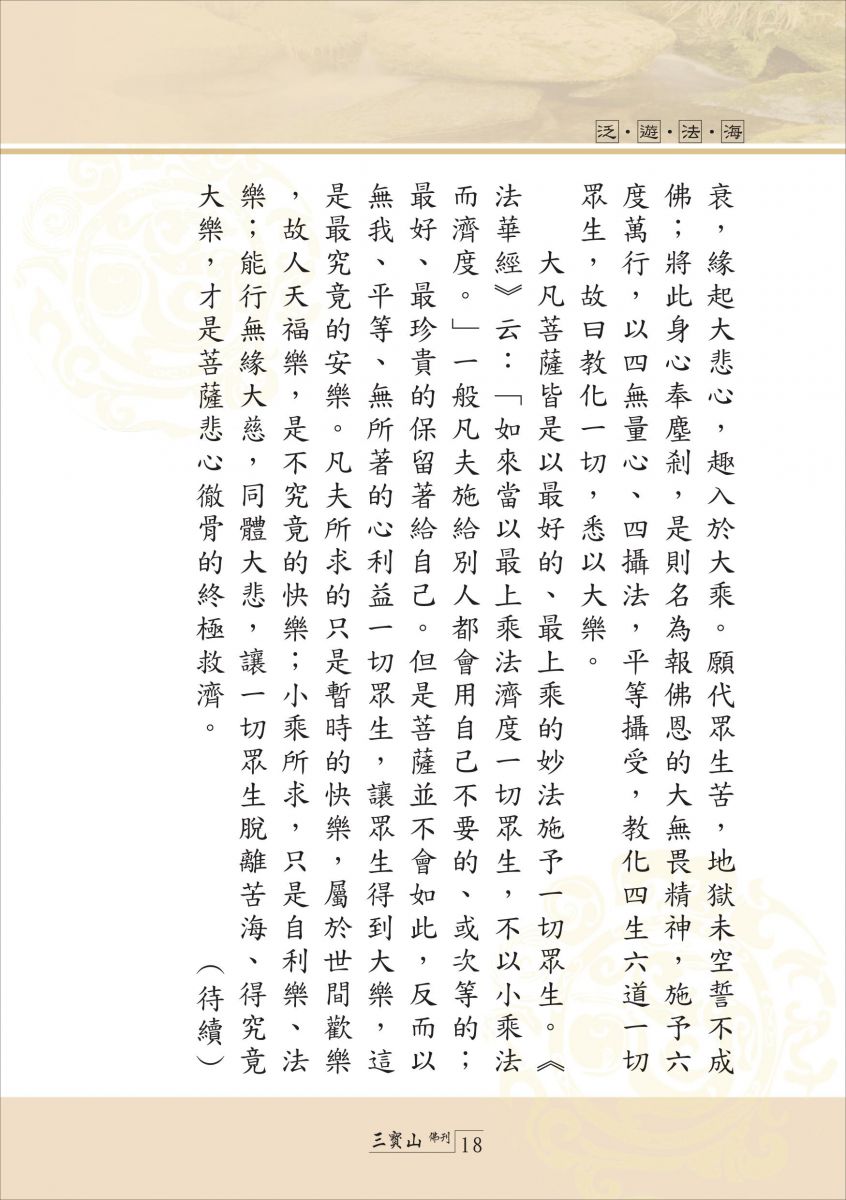 泛・遊・法・海
衰，緣起大悲心，趣入於大乘。願代眾生苦，地獄未空誓不成
佛；將此身心奉塵剎，是則名為報佛恩的大無畏精神，施予六
度萬行，以四無量心、四攝法，平等攝受，教化四生六道一切
眾生，故曰教化一切，悉以大樂。
大凡菩薩皆是以最好的、最上乘的妙法施予一切眾生。《
法華經》云：「如來當以最上乘法濟度一切眾生，不以小乘法
而濟度。」一般凡夫施給別人都會用自己不要的、或次等的；
最好、最珍貴的保留著給自己。但是菩薩並不會如此，反而以
無我、平等、無所著的心利益一切眾生，讓眾生得到大樂，這
是最究竟的安樂。凡夫所求的只是暫時的快樂，屬於世間歡樂
，故人天福樂，是不究竟的快樂；小乘所求，只是自利樂、法
樂；能行無緣大慈，同體大悲，讓一切眾生脫離苦海、得究竟
大樂，才是菩薩悲心徹骨的終極救濟。
（待續）
三寶山 佛刊 18